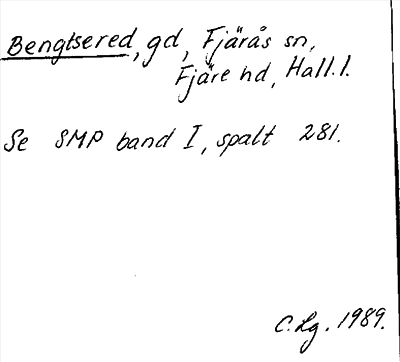 Bengtsered, gd, Fjärås sn,
Fjäre hd, Hall.l.
Se SMP band I, spalt 281.
C.Lg. 1989.